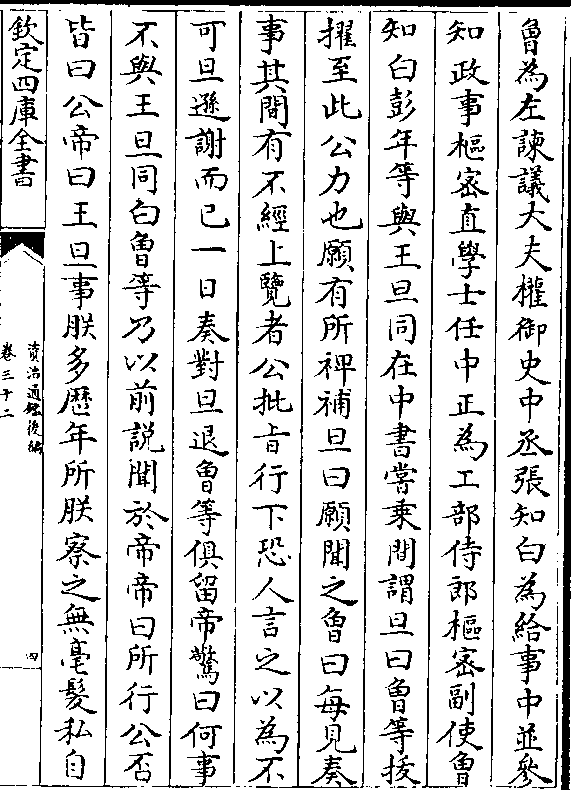 魯為左諫議大夫權御史中丞張知白為給事中並參
知政事樞密直學士任中正為工部侍郎樞密副使魯
知白彭年等與王旦同在中書嘗乗間謂旦曰魯等拔
擢至此公力也願有所裨補旦曰願聞之魯曰每見奏
事其間有不經上覽者公批㫖行下恐人言之以為不
可旦遜謝而已一日奏對旦退魯等俱留帝驚曰何事
不與王旦同白魯等乃以前説聞於帝帝曰所行公否
皆曰公帝曰王旦事朕多歴年所朕察之無毫髮私自
欽定四庫全書
資治通鑑後編
卷三十二
四